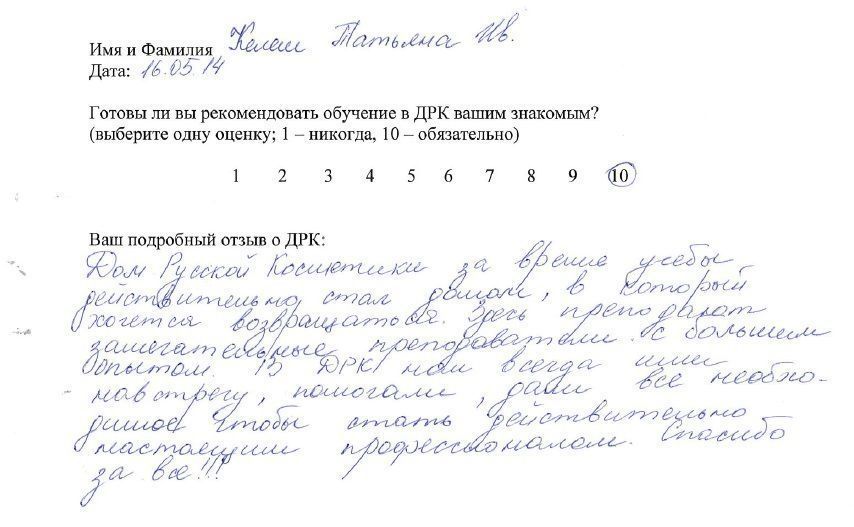 Имя и Фамилия Келаш Татьяна Ив.
Дата: 16.05.14
Готовы ли вы рекомендовать обучение в ДРК вашим знакомым?
(выберите одну оценку; 1 – никогда, 10 – обязательно)
1 2 3 4 5 6 7 8 9 10
Ваш подробный отзыв о ДРК:
Дом Русской Косметики за время учебы
действительно стал домом, в который
хочется возвращаться. Здесь преподают
замечательные преподаватели с большим
опытом. В ДРК нам всегда шли
навстречу, помогали, дали все необхо-
димое чтобы стать действительно
настоящим профессионалом. Спасибо
за все!!!